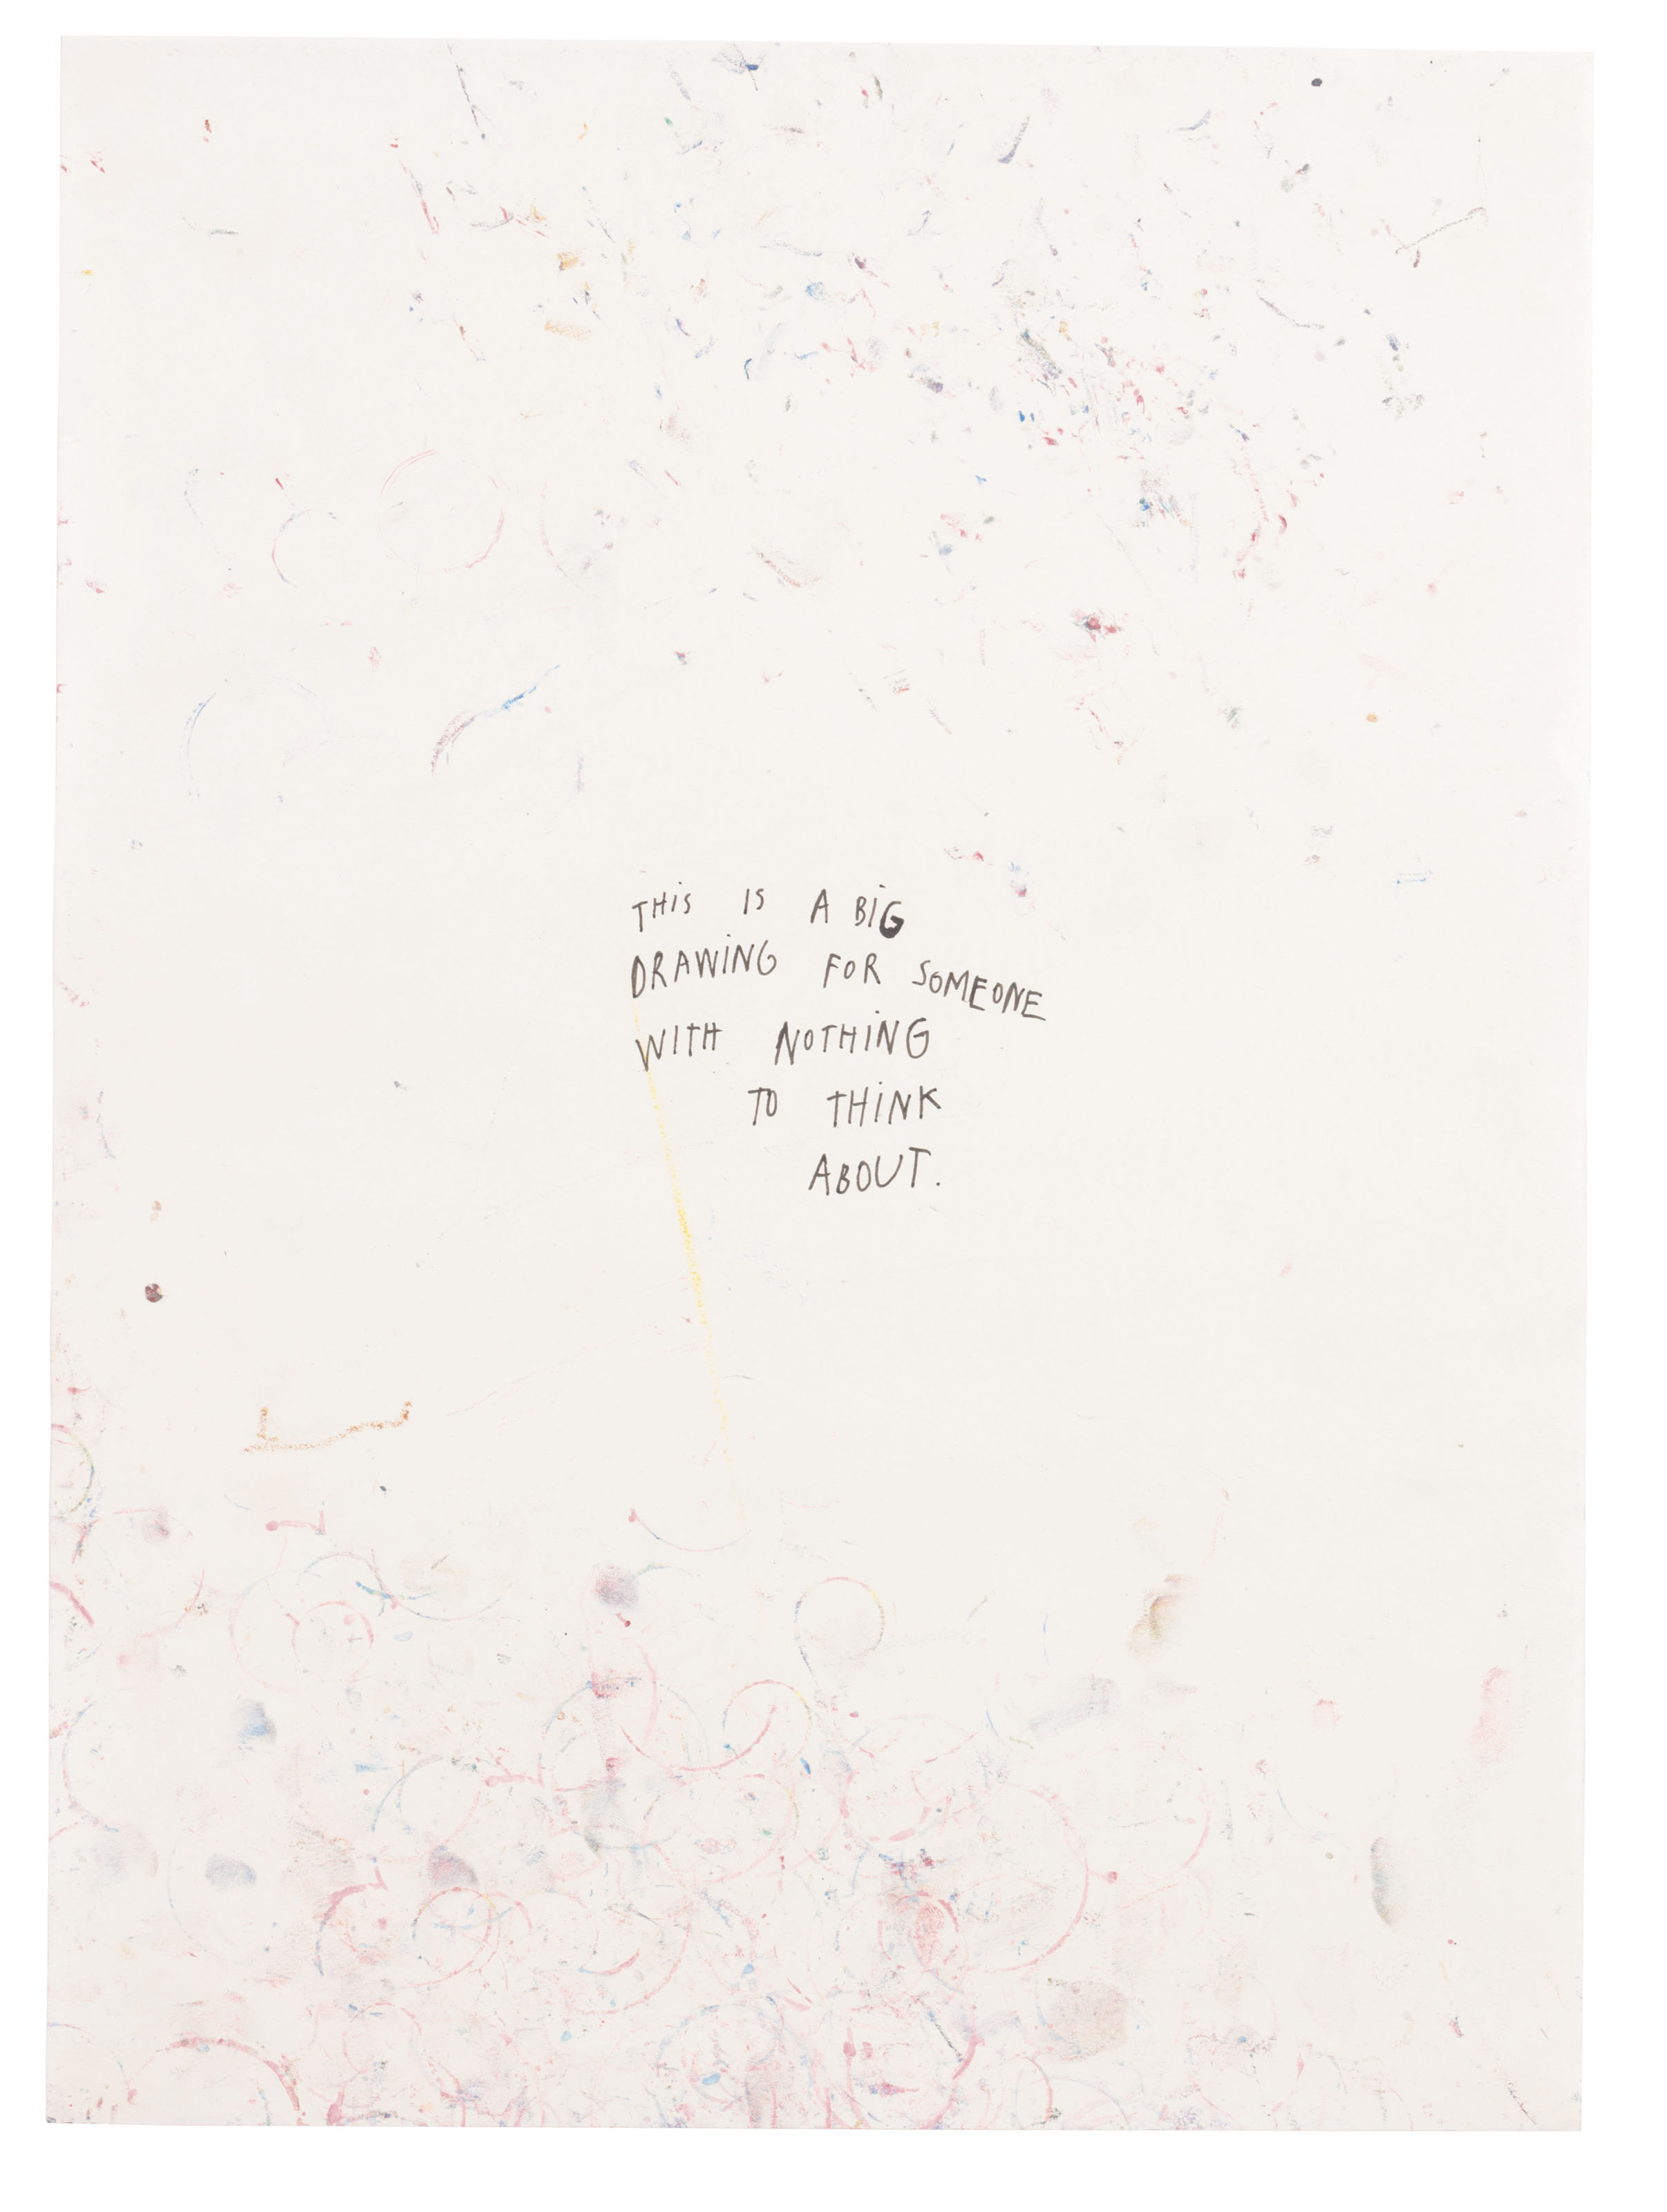 THIS IS A BIG
DRAWING FOR SOMEONE
WITH NOTHING
TO THINK
ABOUT.